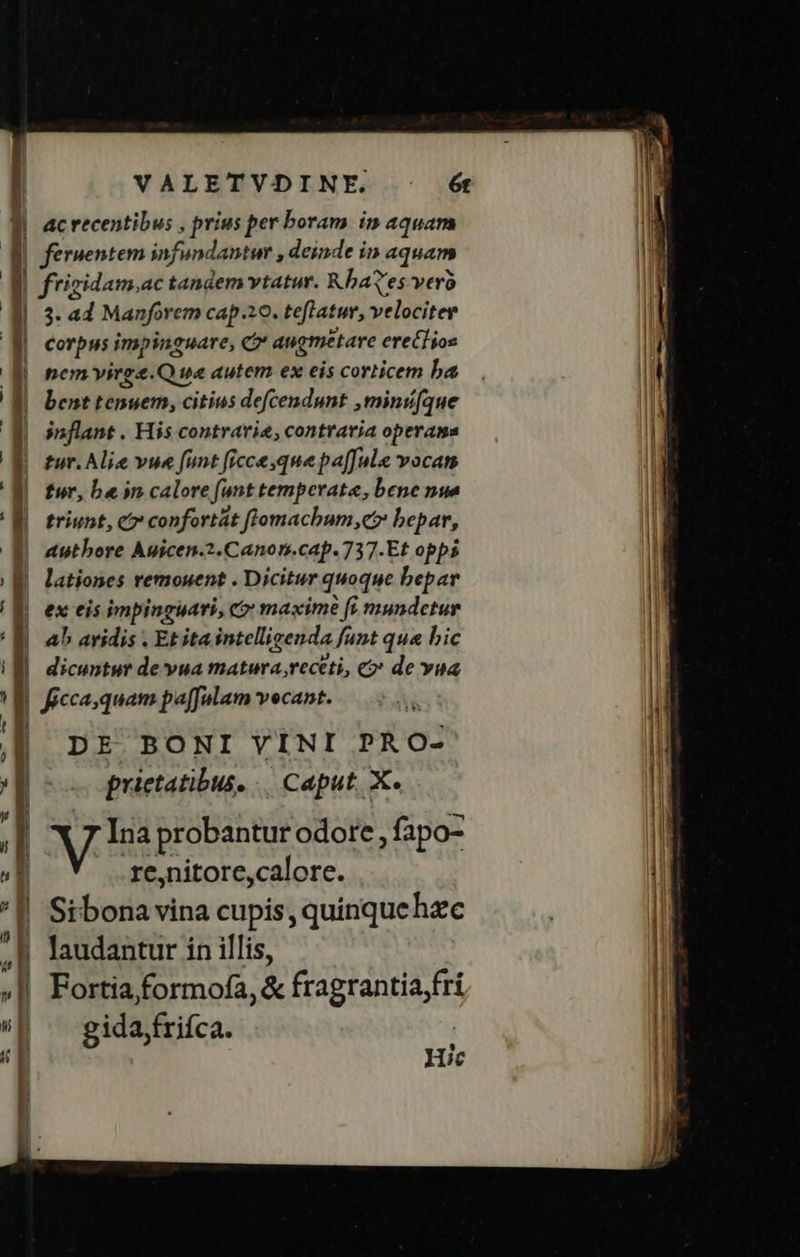 VALETVDINE. 61
ac recentibus , prius per horam in aquam
feruentem infundantur , deinde in aquam
frigidam,ac tandem vtatur. Rhazes verò
3. ad Mansorem cap.20. testatur, velociter
corpus impinguare, & augmētare erectio=
nem virgæ.Quæ autem ex eis corticem ha
bent tenuem, citius descendunt ,minúsque
inflant . His contrariæ, contraria operan=
tur. Aliæ vuæ sunt siccæ,quæ passulæ vocan
tur, hæ in calore sunt temperatæ, bene nu=
triunt, & confortāt stomachum,& hepar,
authore Auicen.2.Canon.cap.737.Et oppi
lationes remouent . Dicitur quoque hepar
ex eis impinguari, & maximè si mundetur
ab aridis . Et ita intelligenda sunt quæ hic
dicuntur de vua matura,recēti, & de vua
sicca,quam passulam vocant.
DE BONI VINI PRO-
prietatibus. Caput X.
VIna probantur odore, sapo-
re,nitore,calore.
Si bona vina cupis, quinque hæc
laudantur in illis,
Fortia,formosa, & fragrantia,fri
gida,frisca.
Hic